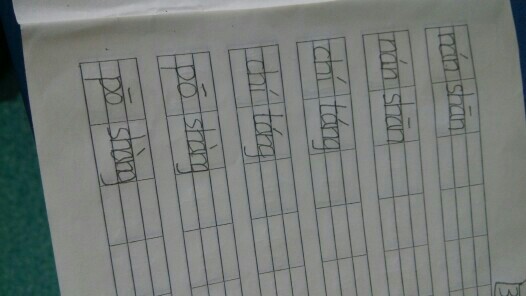 nán shān
nán shān
chí táng
chí táng
pō shàng
pō shàng